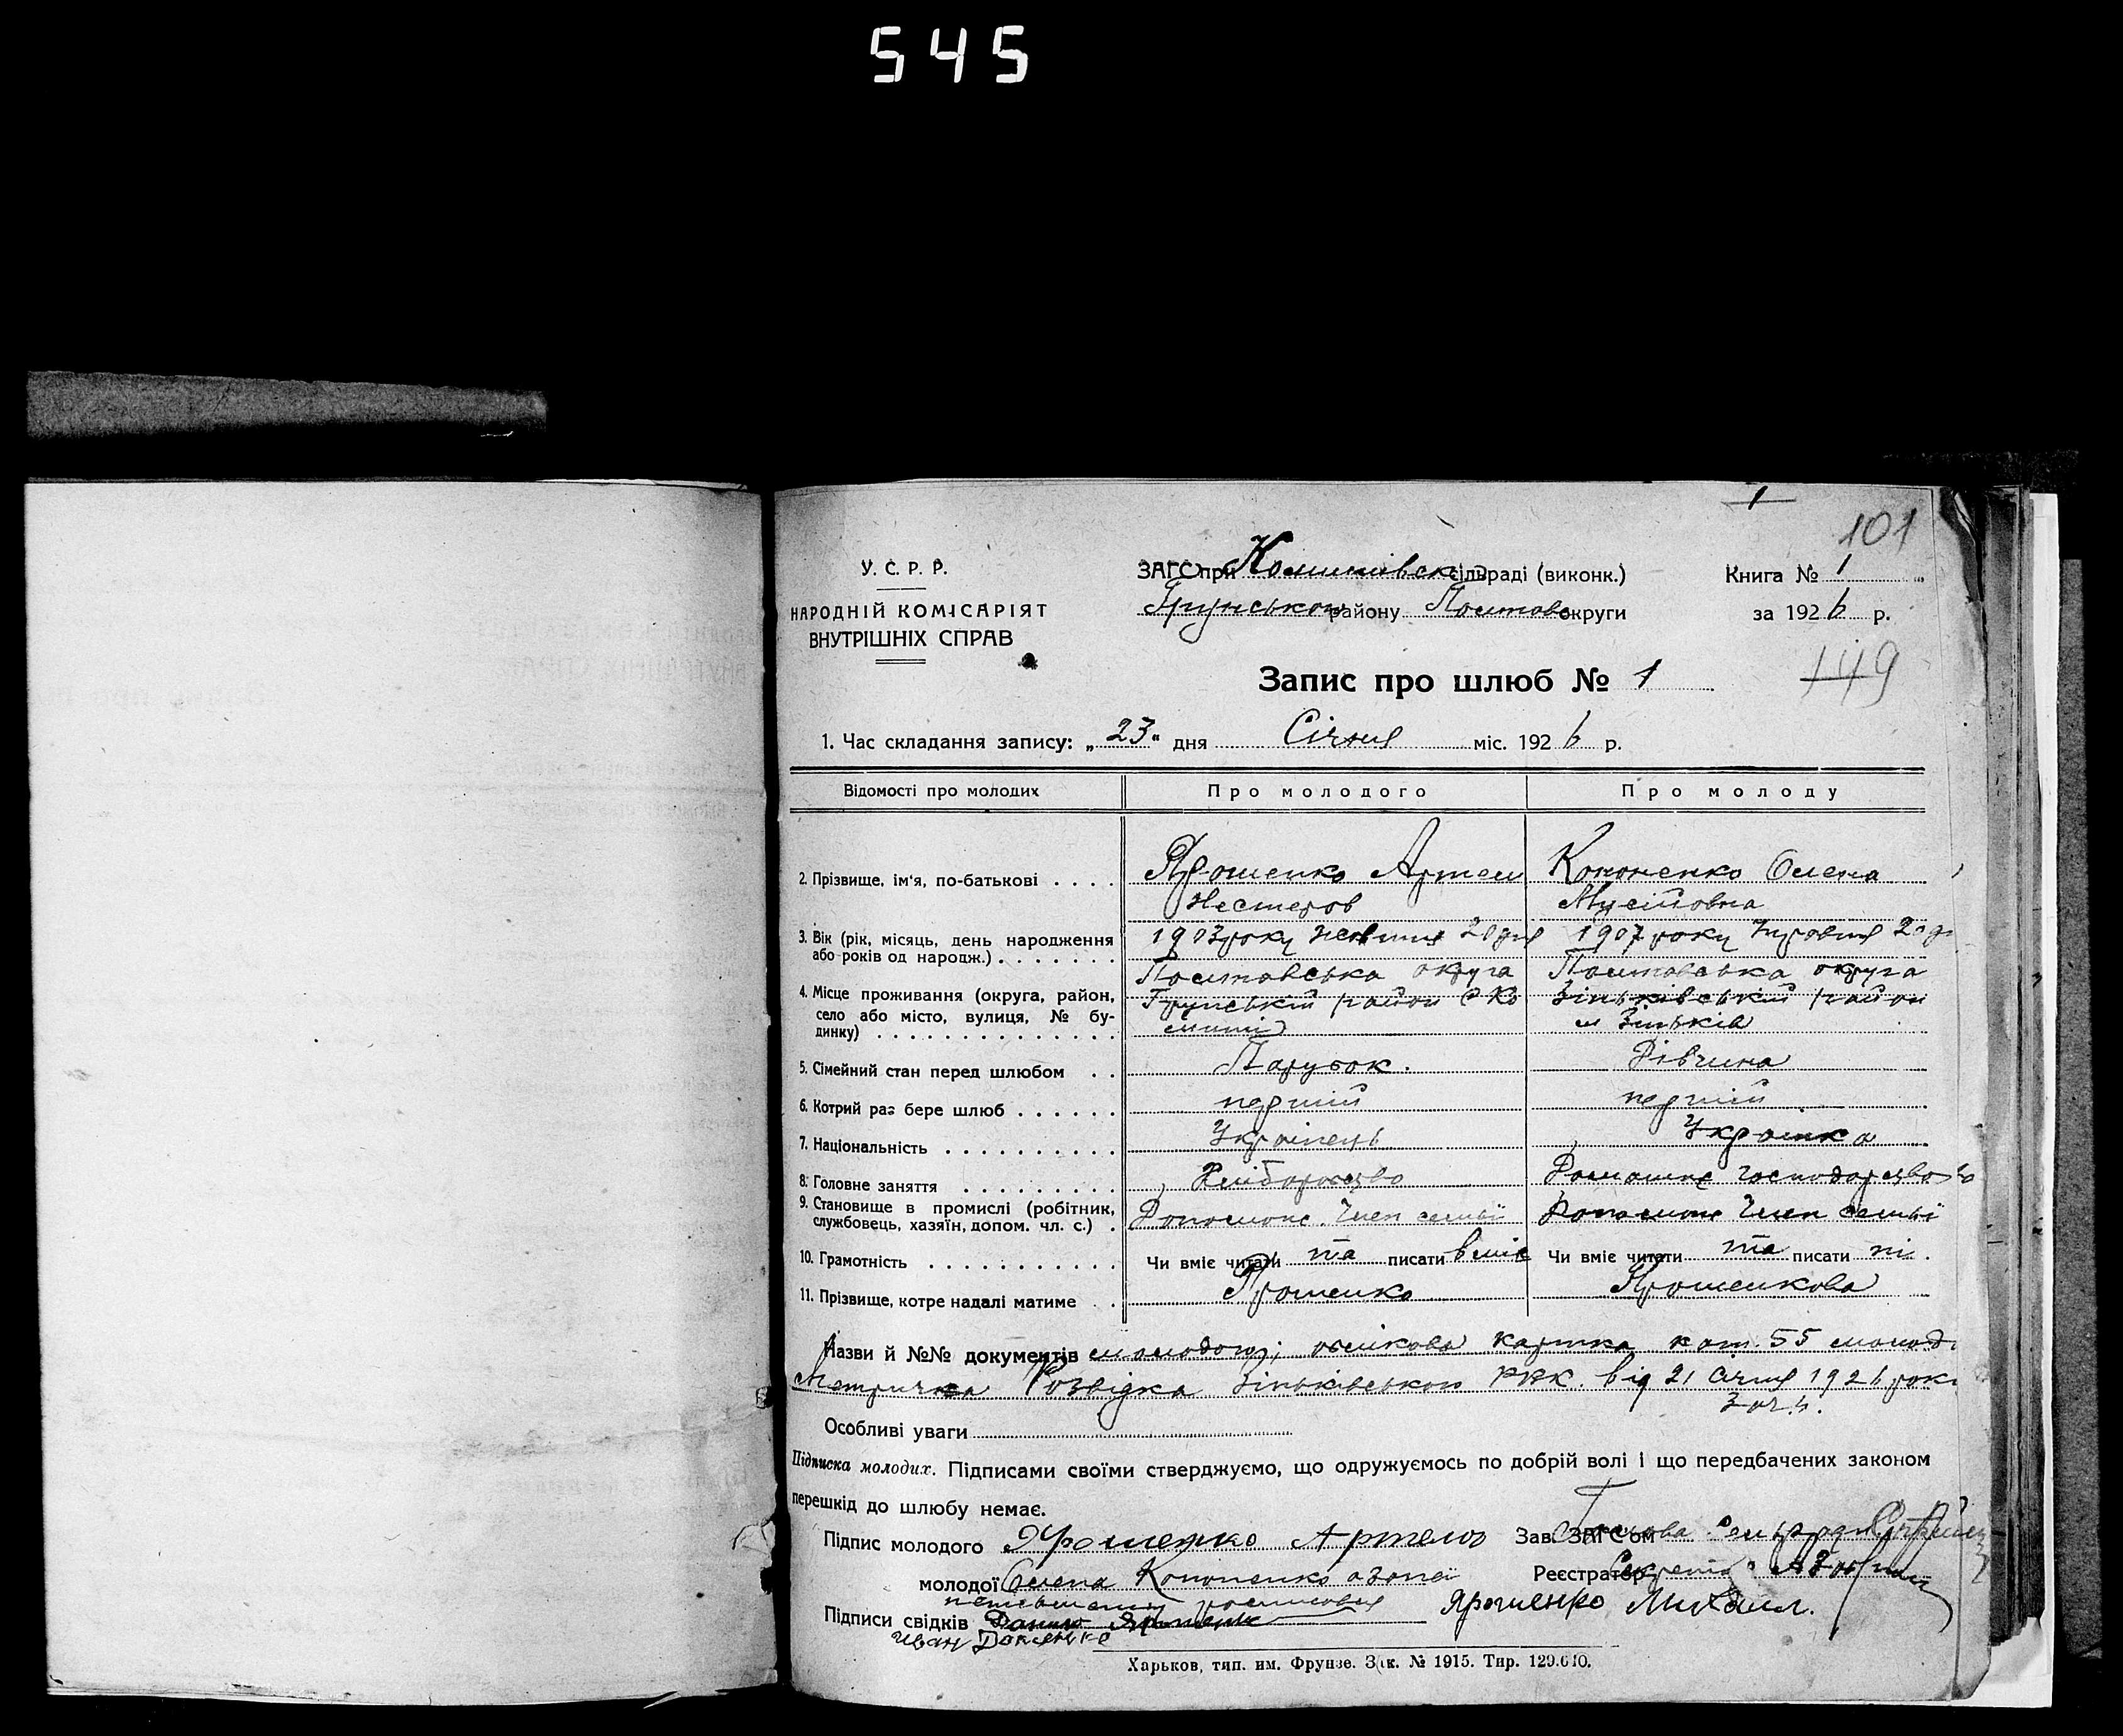 545
1
101
У. С. Р. Р.
НАРОДНІЙ КОМІСАРІЯТ
ВНУТРІШНІХ СПРАВ
ЗАГС при Комишівськ сільраді (виконк.)
Грунського району Полтавс округи
Книга № 1
за 1926 р.
149
Запис про шлюб № 1
1. Час складання запису: „ 23 “ дня Січня міс. 1926 р.
Відомості про молодих Про молодого Про молоду
2. Прізвище, ім'я, по-батькові . . . . Ярошенко Артем Кононенко Олена
Нестеров Мусійовна
3. Вік (рік, місяць, день народження 1903 року жовтня 20 дня 1907 року 20 д
або років од народж.) . . . . . . .
Полтавська округа Полтавська округа
4. Місце проживання (округа, район, Грунський район С Ко Зіньківський район
село або місто, вулиця, № бу- миші м Зіньків
динку) . . . . . . . . . . . . . .
5. Сімейний стан перед шлюбом . . Парубок. Дівчина
6. Котрий раз бере шлюб . . . . . . перший перший
7. Національність . . . . . . . . . . Українець Українка
8. Головне заняття . . . . . . . . . Хліборобство Домашнє господарство
9. Становище в промислі (робітник, Допомож. Член семьї Допомож Член семьї
службовець, хазяїн, допом. чл. с.) .
10. Грамотність . . . . . . . . . . . Чи вміє читати та писати вміє Чи вміє читати та писати ні.
11. Прізвище, котре надалі матиме . . Ярошенко Ярошенкова
Назви й №№ документів молодого; облікова картка кат. 55 молод
Метрична Розвідка Зіньківського РВК. від 21 Січня 1926 року
Особливі уваги
Підписка молодих. Підписами своїми стверджуємо, що одружуємось по добрій волі і що передбачених законом
перешкід до шлюбу немає.
Підпис молодого Ярошенко Артем Зав. ЗАГС'ом Голова
молодої Олена Кононенко а за неї Реєстратор Секретар
Підписи свідків Данило Ярошенко Ярошенко Михаил.
Иван
Харьков, тип. им. Фрунзе. Зак. № 1915. Тир. 129.610.